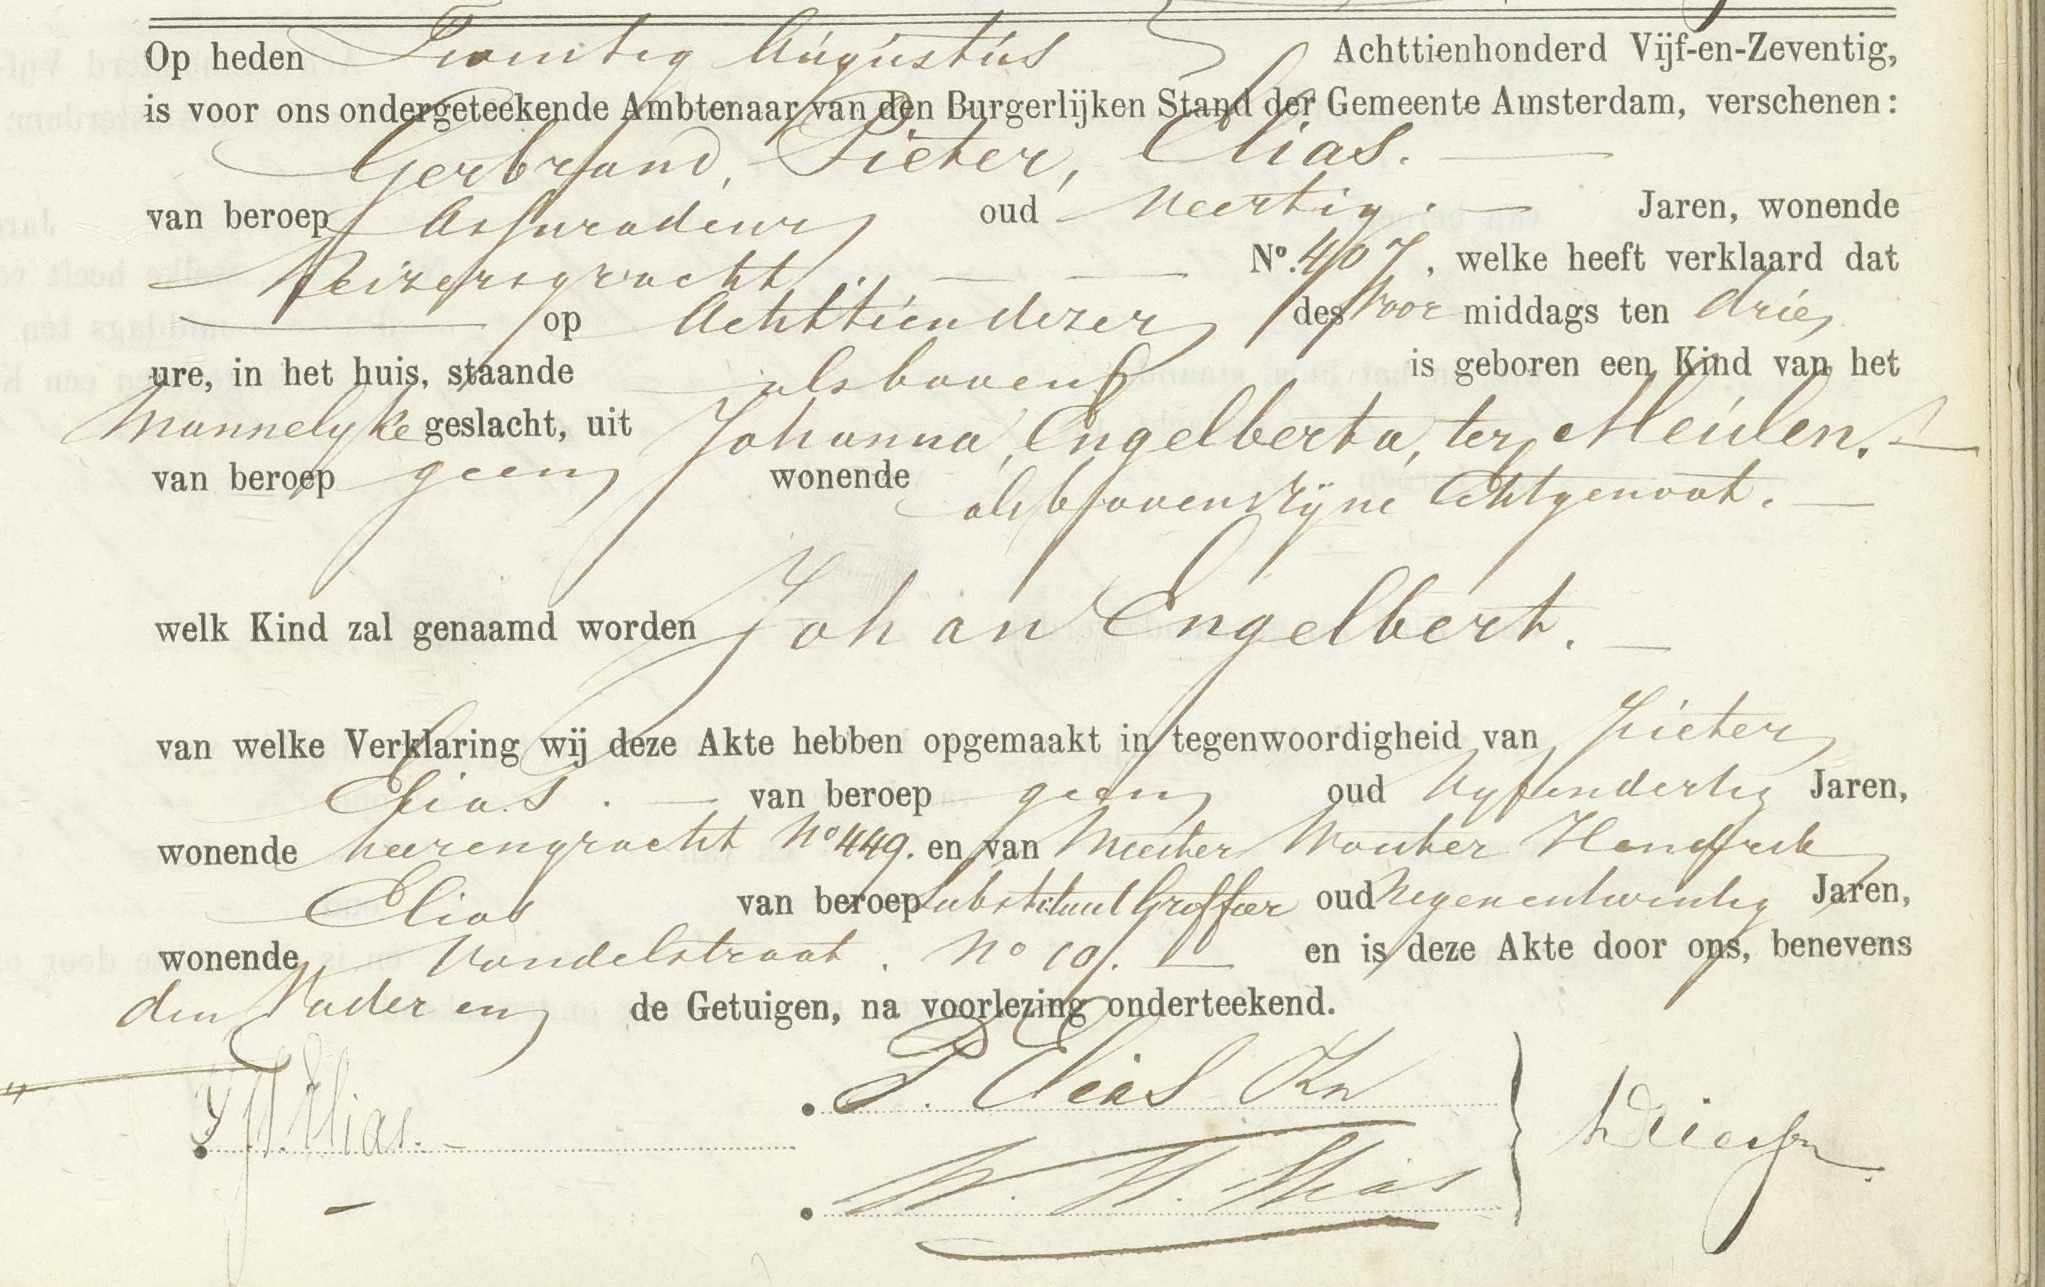 Op heden Twintig Augustus Achttienhonderd Vijf-en-Zeventig,
is voor ons ondergeteekende Ambtenaar van den Burgerlijken Stand der Gemeente Amsterdam, verschenen:
Gerbrand, Pieter, Elias.
van beroep Assuradeur oud Veertig. Jaren, wonende
Keizersgracht No. 407, welke heeft verklaard dat
op Achttien dezer des Voor middags ten drie
ure, in het huis, staande alsboven is geboren een Kind van het
Mannelyke geslacht, uit Johanna, Engelberta, ter Meulen.
van beroep geen wonende alsboven Zyne Echtgenoot.
welk Kind zal genaamd worden Johan Engelbert.
van welke Verklaring wij deze Akte hebben opgemaakt in tegenwoordigheid van Pieter
Elias. van beroep geen oud Vyfendertig Jaren,
wonende heerengracht No 449. en van Meester Wouter Hendrik
Elias van beroep Substituut Griffier oud Negenentwintig Jaren,
wonende Vondelstraat. No 10. en is deze Akte door ons, benevens
den Vader en de Getuigen, na voorlezing onderteekend.
P. Elias
Elias.
W. H. Elias